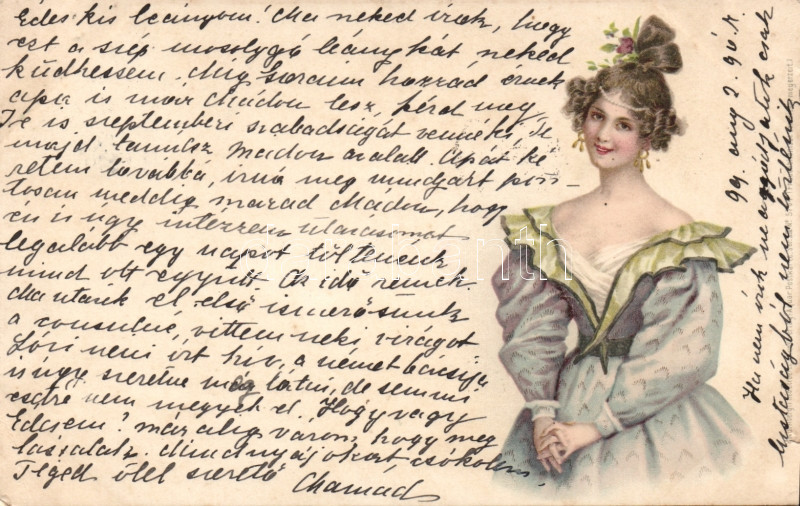 Édes kis leányom! Ma neked írok, hogy
ezt a szép mosolygó leánykát neked
küdhessem. Míg soraim hozzád érnek
apa is már Mádon lesz, kérd meg,
Te is szeptemberi szabadságát vennéki,
majd tanulsz Madon azalatt. Apát ké
retem továbbá, írná meg mindjárt pon-
tosan meddig marad Mádon, hogy
én is úgy intézzem utazásomat
legalább egy napot töltenénk
mind ott együtt. Az idő remek.
Ma utazik el első ismerősünk
a consulné, vittem neki virágot
Lóri neni ört hiv, a német bácsija
is úgy szeretne még látni, de semmi
esetre nem megyek el. Hogy vagy
Édesem? már alig várom, hogy meg
lássalak. Mindnyájokat csókolom,
Téged ölel szerető Mamád
99. aug 2. 90.
Ha nem írok magyarázatok csak
lustaságból nem történik